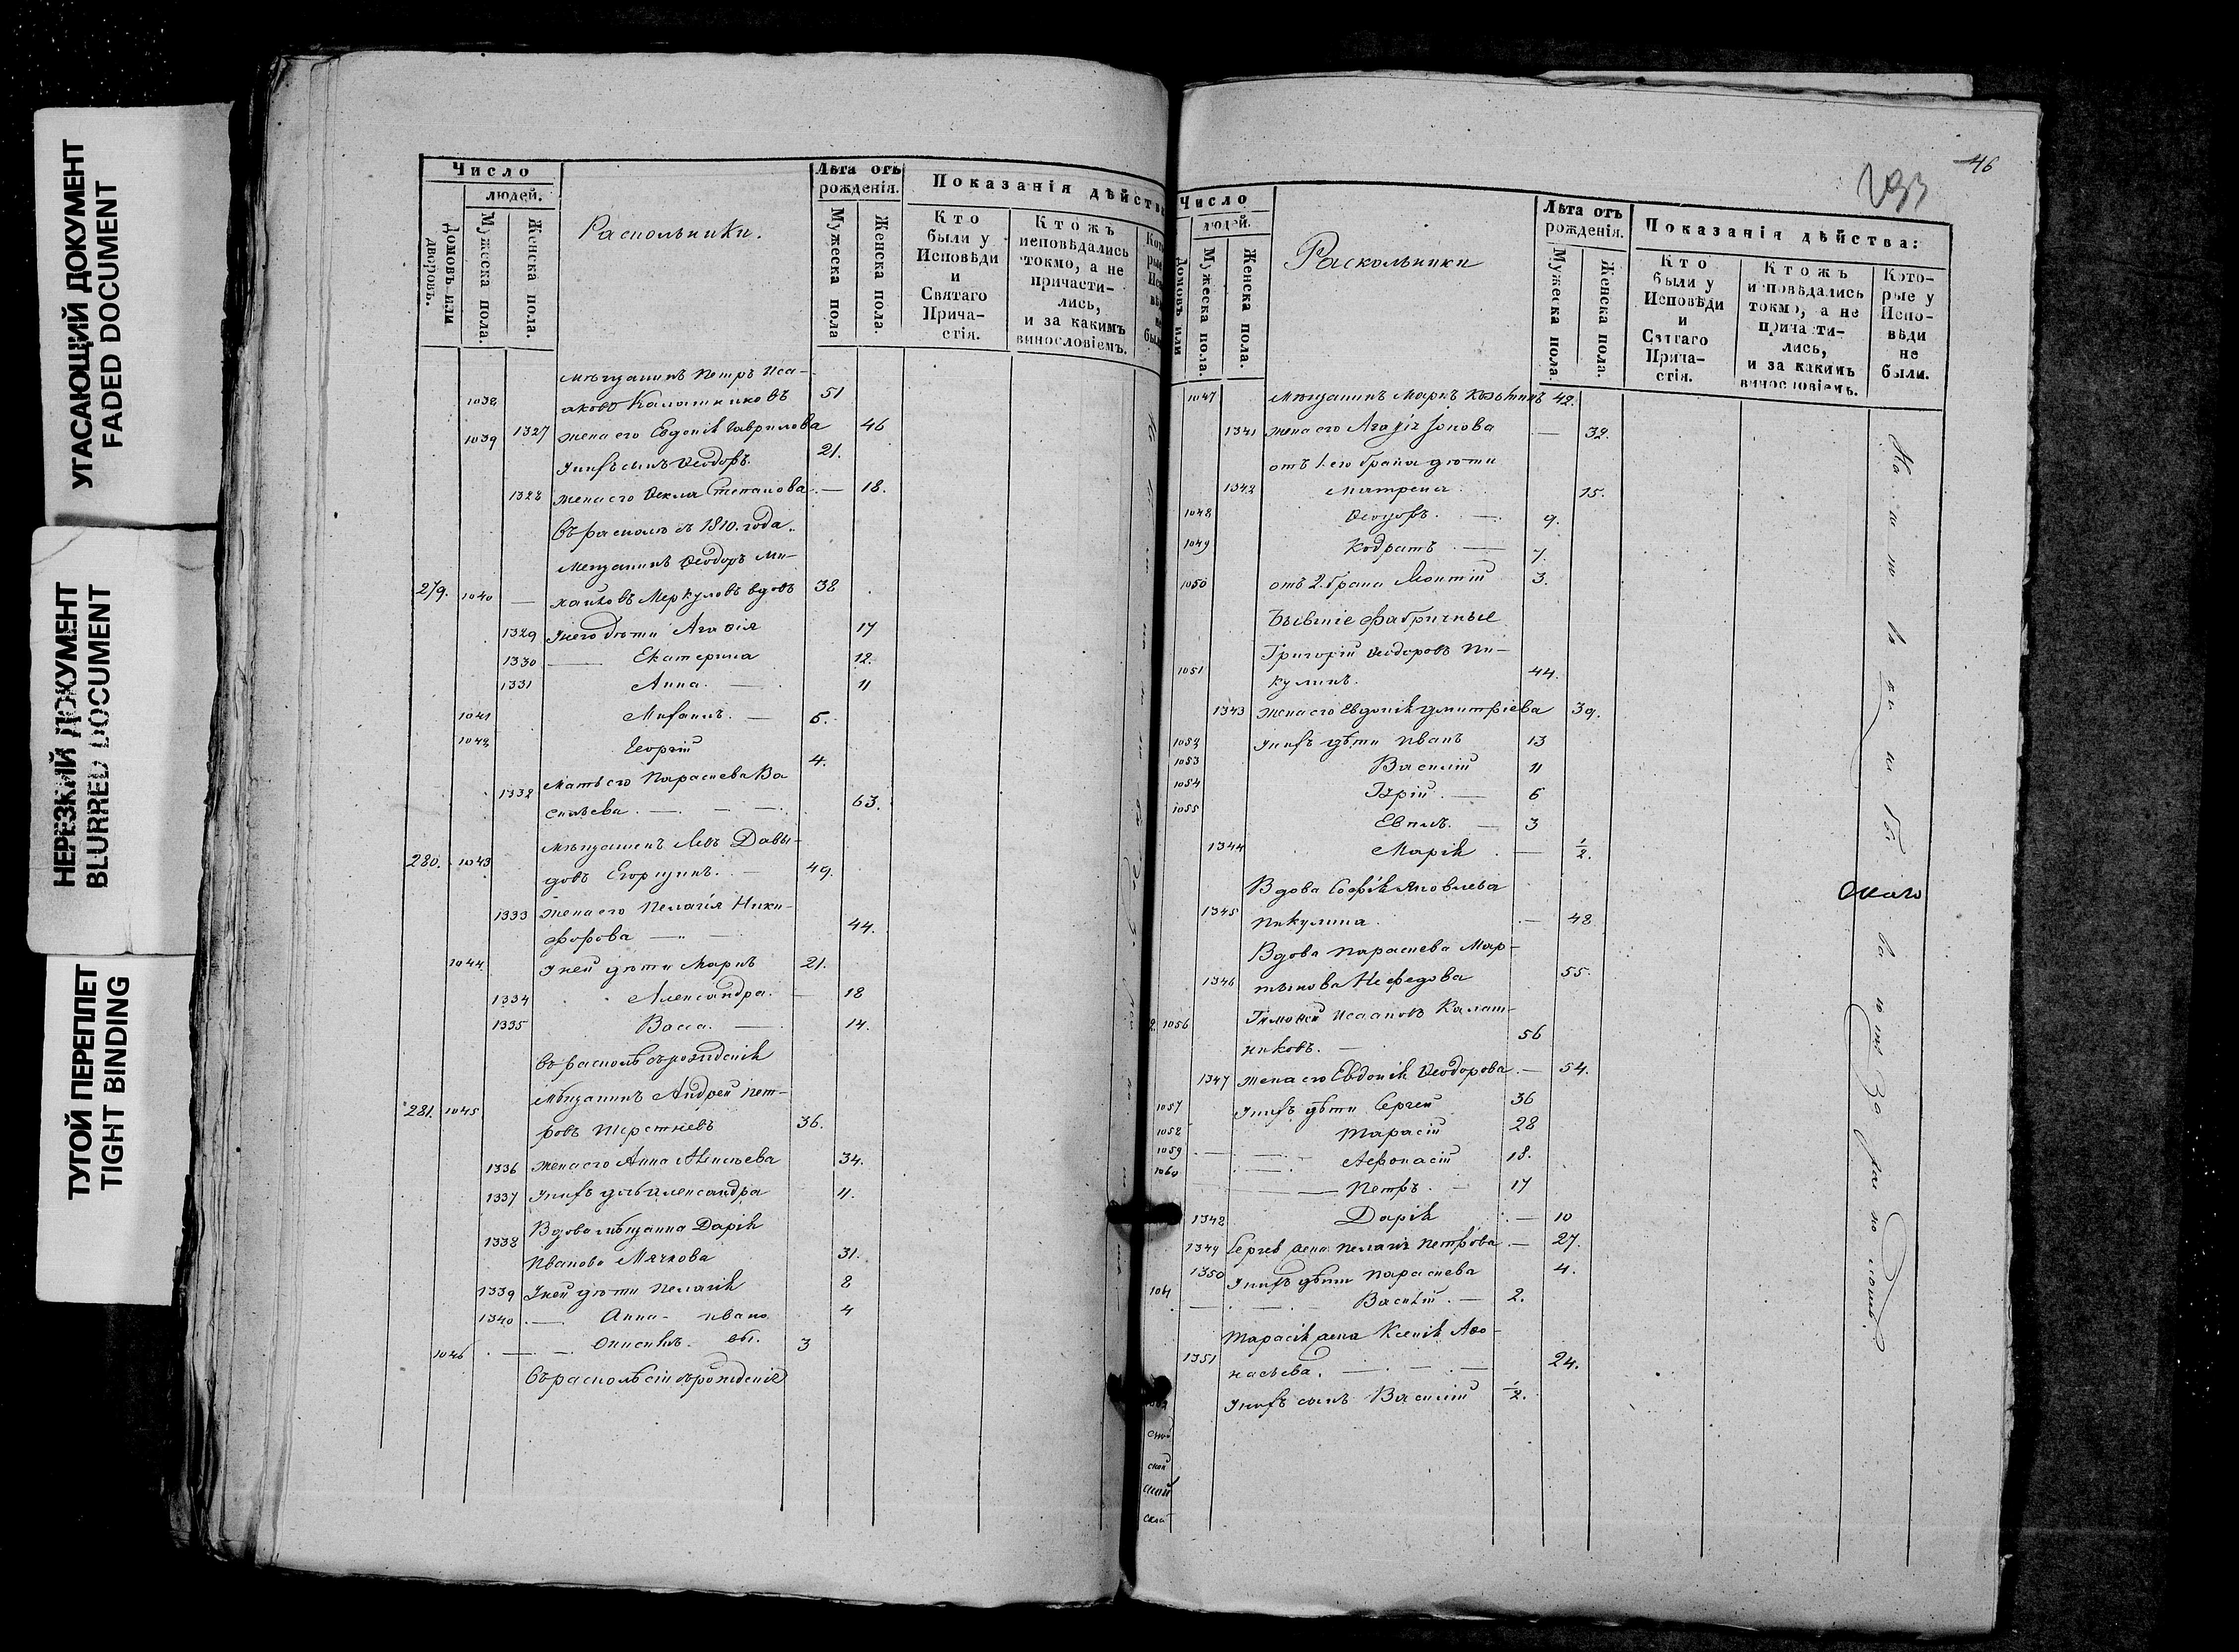 УГАСАЮЩИЙ ДОКУМЕНТ
FADED DOCUMENT
НЕРЕЗКИЙ ДОКУМЕНТ
BLURRED DOCUMENT
ТУГОЙ ПЕРЕПЛЕТ
TIGHT BINDING
Число
людей.
Домовъ или дворовъ.
Мужеска пола.
Женска пола.
Раскольники.
Лѣта отъ рожденія.
Мужеска пола
Женска пола.
Показанія дѣйства
Кто были у Исповѣди и Святаго Причастія.
Ктожъ исповѣдались токмо, а не причастились, и за какимъ винословіемъ.
Мѣщанинъ Петръ Иса-
1038 аковъ Калашниковъ 51
1327 жена его Евдокія Гаврилова 46
1039 У нихъ сынъ Ѳеодоръ 21.
1328 жена его Ѳекла Степанова — 18.
Въ расколѣ съ 1810. года.
Мещанинъ Ѳеодоръ Ми-
279. 1040 — хайловъ Меркуловъ вдовъ 38
1329 У него дѣти Агафія 17
1330 — Екатерина 12.
1331 Анна. — 11
1041 Михаилъ. — 5.
1042 Георгій 4.
1332 Мать его Параскева Ва
сильева. — 63.
Мѣщанинъ Левъ Давы-
280. 1043 довъ Егорщинъ. — 49.
1333 жена его Пелагія Ники-
форова — 44.
1044 У ней дѣти Маркъ 21.
1334 Александра. — 18
1335 Васса. — 14.
въ расколѣ съ рожденія
Мѣщанинъ Андрей Пет-
281. 1045 ровъ Шерстневъ 36.
1336 жена его Анна Алексѣева 34.
1337 У нихъ дочь Александра 11.
1338 Вдова мѣщанка Дарія
Иванова Мячкова 31.
1339 У ней дѣти Пелагія 8
1340 — Анна - Ивано 4
1046 — Онисимъ. вы. 3
въ расколѣ сіи съ рожденія
46
Число
людей.
Домовъ или
Мужеска пола.
Женска пола.
Раскольники
Лѣта отъ рожденія.
Мужеска пола.
Женска пола.
Показанія дѣйства:
Кто были у Исповѣди и Святаго Причастія.
Ктожъ исповѣдались токмо, а не причастились, и за какимъ винословіемъ.
Которые у Исповѣди не были.
1047 Мѣщанинъ Маркъ Козьминъ 42.
1341 жена его Агафія Іонова — 32.
отъ 1. его брака дѣти
1342 Матрена. 15.
1048 Ѳеодоръ. — 9.
1049 Кодратъ. — 7.
1050 отъ 2. брака Леонтій 3.
Бывшіе фабричные
Григорій Ѳеодоровъ Пи-
1051 кулинъ. 44.
1343 жена его Евдокія Димитріева 39.
1052 У нихъ дѣти Иванъ 13
1053 Василій 11
1054 Гурій. — 6
1055 Евпл. — 3
1344 Марія. — ½.
Вдова Софія Яковлева
1345 Пикулина. — 48
Вдова Параскева Мар-
1346 тынова Нефедова 55.
1056 Тимофей Исааковъ Калаш-
никовъ. — 56
1347 жена его Евдокія Ѳеодорова. — 54.
1057 У нихъ дѣти Сергей 36
1058 Тарасій 28
1059 Афонасій 18.
1060 Петръ. 17
1348 Дарія — 10
1349 Сергея жена Пелагія Петрова. — 27.
1350 У нихъ дѣти Параскева 4.
1061 Василій. — 2.
Тарасія жена Ксенія Афо-
1351 насьева. — 24.
У нихъ сынъ Василій ½.